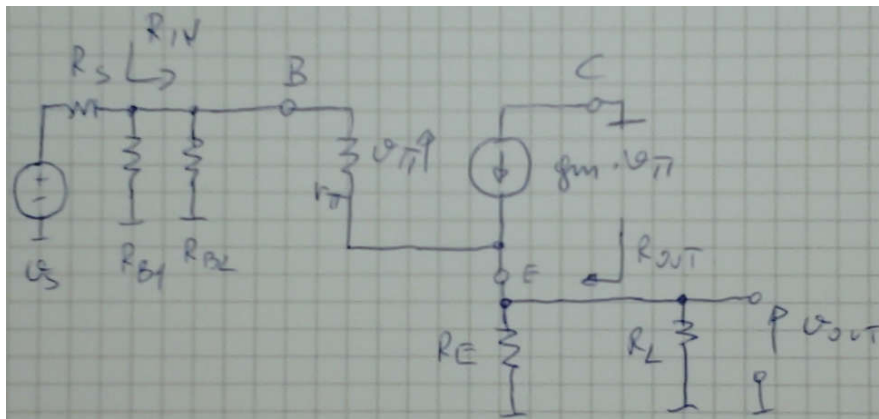 RIN
RS
B
C
vπ
rπ
gm·vπ
+
-
vs
RB1
RB2
E
ROUT
RE
RL
vOUT